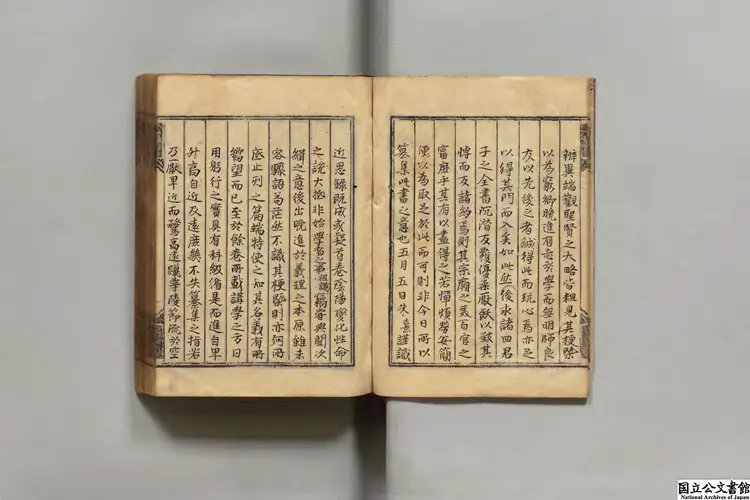 辨異端觀聖賢之大略皆粗見其梗槩
以為窮鄉晚進有志於學而無明師良
友以先後之者誠得此而玩心焉亦足
以得其門而入矣如此然後求諸四君
子之全書沉潛反覆優柔厭飫以致其
博而反諸約焉則其宗廟之美百官之
富庶乎其有以盡得之若憚煩勞安簡
便以為取足於此而可則非今日所以
纂集此書之意也五月五日朱熹謹識
近思錄既成或疑首卷陰陽變化性命
之說大抵非始學者之事祖謙竊嘗與聞次
緝之意後出晚進於義理之本原雖未
容驟語苟茫然不識其梗槩則亦何所
底止列之篇端特使之知其名義有所
嚮望而已至於餘卷所載講學之方日
用躬行之實具有科級循是而進自卑
升高自近及遠庶幾不失纂集之指若
乃厭卑近而騖高遠躐等陵節流於空
国立公文書館
National Archives of Japan